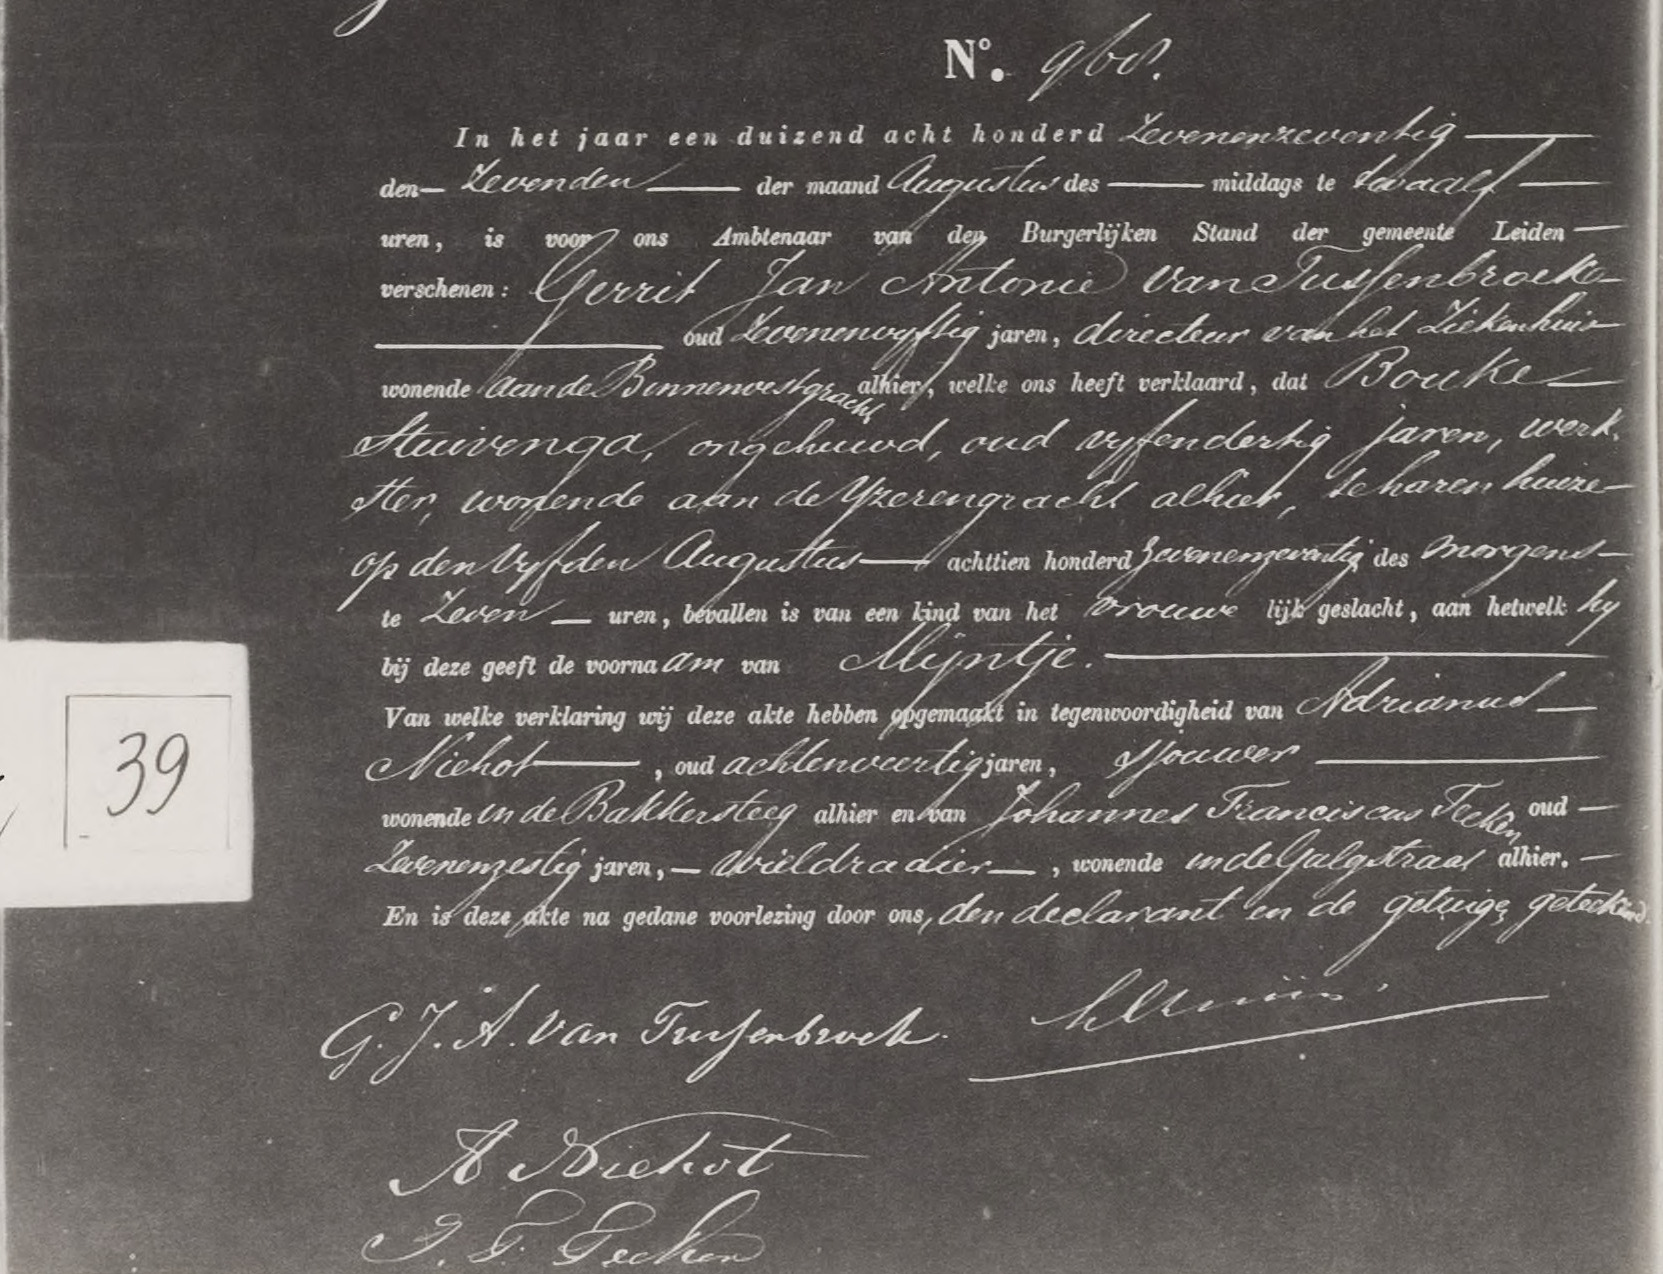 N°. 968.
In het jaar een duizend acht honderd Zevenenzeventig
den Zevenden der maand Augustus des middags te twaalf
uren, is voor ons Ambtenaar van den Burgerlijken Stand der gemeente Leiden
verschenen: Gerrit Jan Antonie van Tussenbroek
oud Zevenenvyftig jaren, directeur van het Ziekenhuis
wonende aan de Binnenvestgracht alhier, welke ons heeft verklaard, dat Bouke
Stuivenga, ongehuwd, oud vyfendertig jaren, werk-
ster, wonende aan de Yzerengracht alhier, te haren huize
op den Vyfden Augustus achttien honderd Zevenenzeventig des morgens
te Zeven uren, bevallen is van een kind van het vrouwelijk geslacht, aan hetwelk hy
bij deze geeft de voornaam van Mijntje.
Van welke verklaring wij deze akte hebben opgemaakt in tegenwoordigheid van Adrianus
Niehot, oud achtenveertig jaren, sjouwer
wonende in de Bakkersteeg alhier en van Johannes Franciscus Fecken oud
Zevenenzestig jaren, wieldraaier, wonende in de Galgstraat alhier.
En is deze akte na gedane voorlezing door ons, den declarant en de getuigen geteekend.
G. J. A. van Tussenbroek.
A Niehot
J. F. Fecken
39